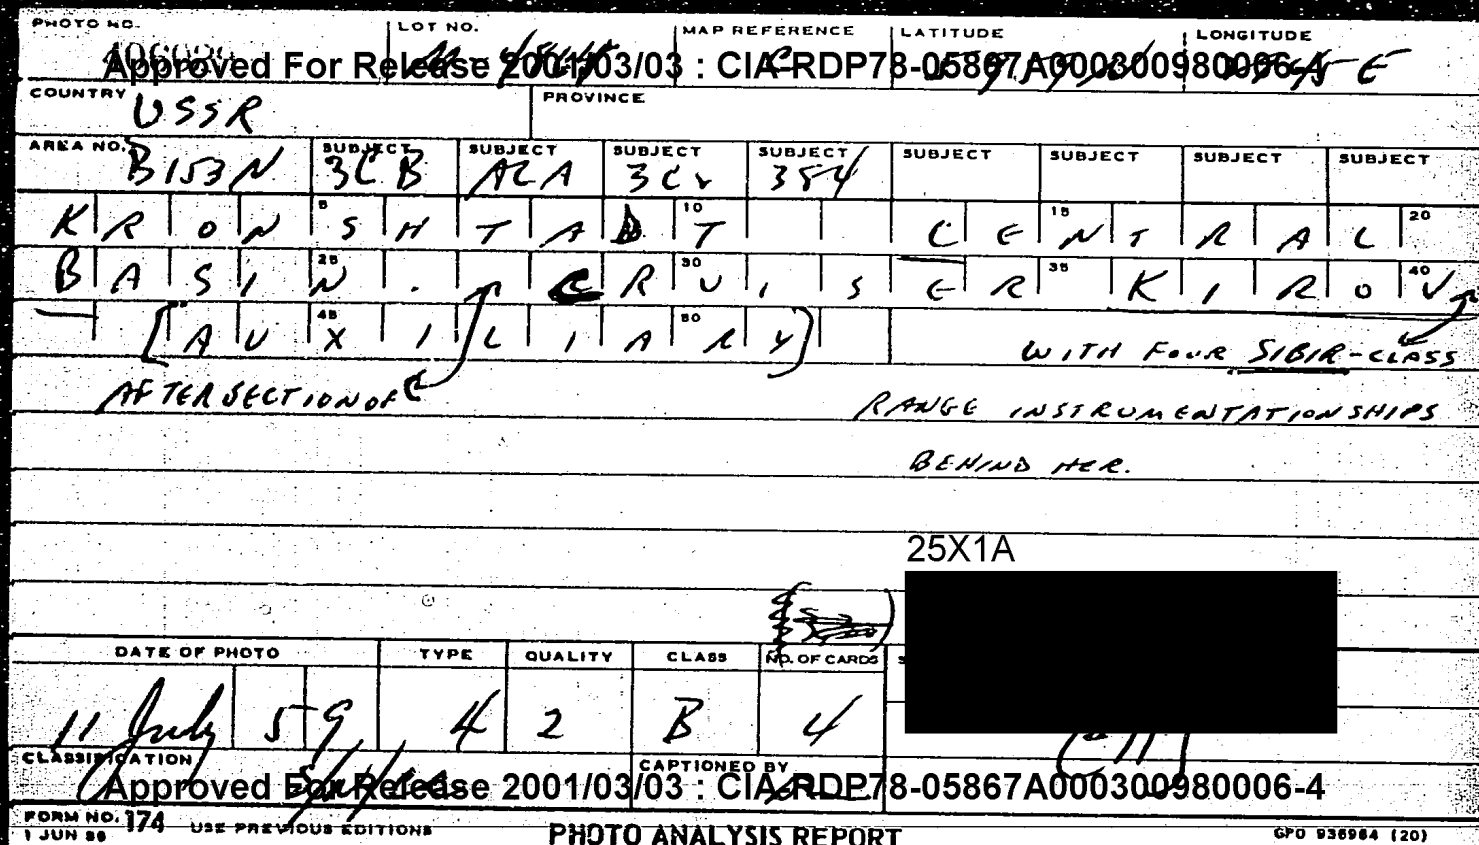 PHOTO NO. LOT NO. MAP REFERENCE LATITUDE LONGITUDE
Approved For Release 2001/03/03 : CIA-RDP78-05867A000300980006-4
COUNTRY USSR PROVINCE
AREA NO. B153N SUBJECT 3CB SUBJECT SUBJECT SUBJECT 354 SUBJECT SUBJECT SUBJECT SUBJECT
KRONSHTADT CENTRAL
BASIN. CRUISER KIROV
[AUXILIARY]
WITH FOUR SIBIR-CLASS
AFTER SECTION OF
RANGE INSTRUMENTATION SHIPS
BEHIND HER.
25X1A
DATE OF PHOTO TYPE QUALITY CLASS NO. OF CARDS
11 July 59 4 2 B 4
CLASSIFICATION CAPTIONED BY
Approved For Release 2001/03/03 : CIA-RDP78-05867A000300980006-4
FORM NO. 174 USE PREVIOUS EDITIONS PHOTO ANALYSIS REPORT GPO 936984 (20)
1 JUN 56